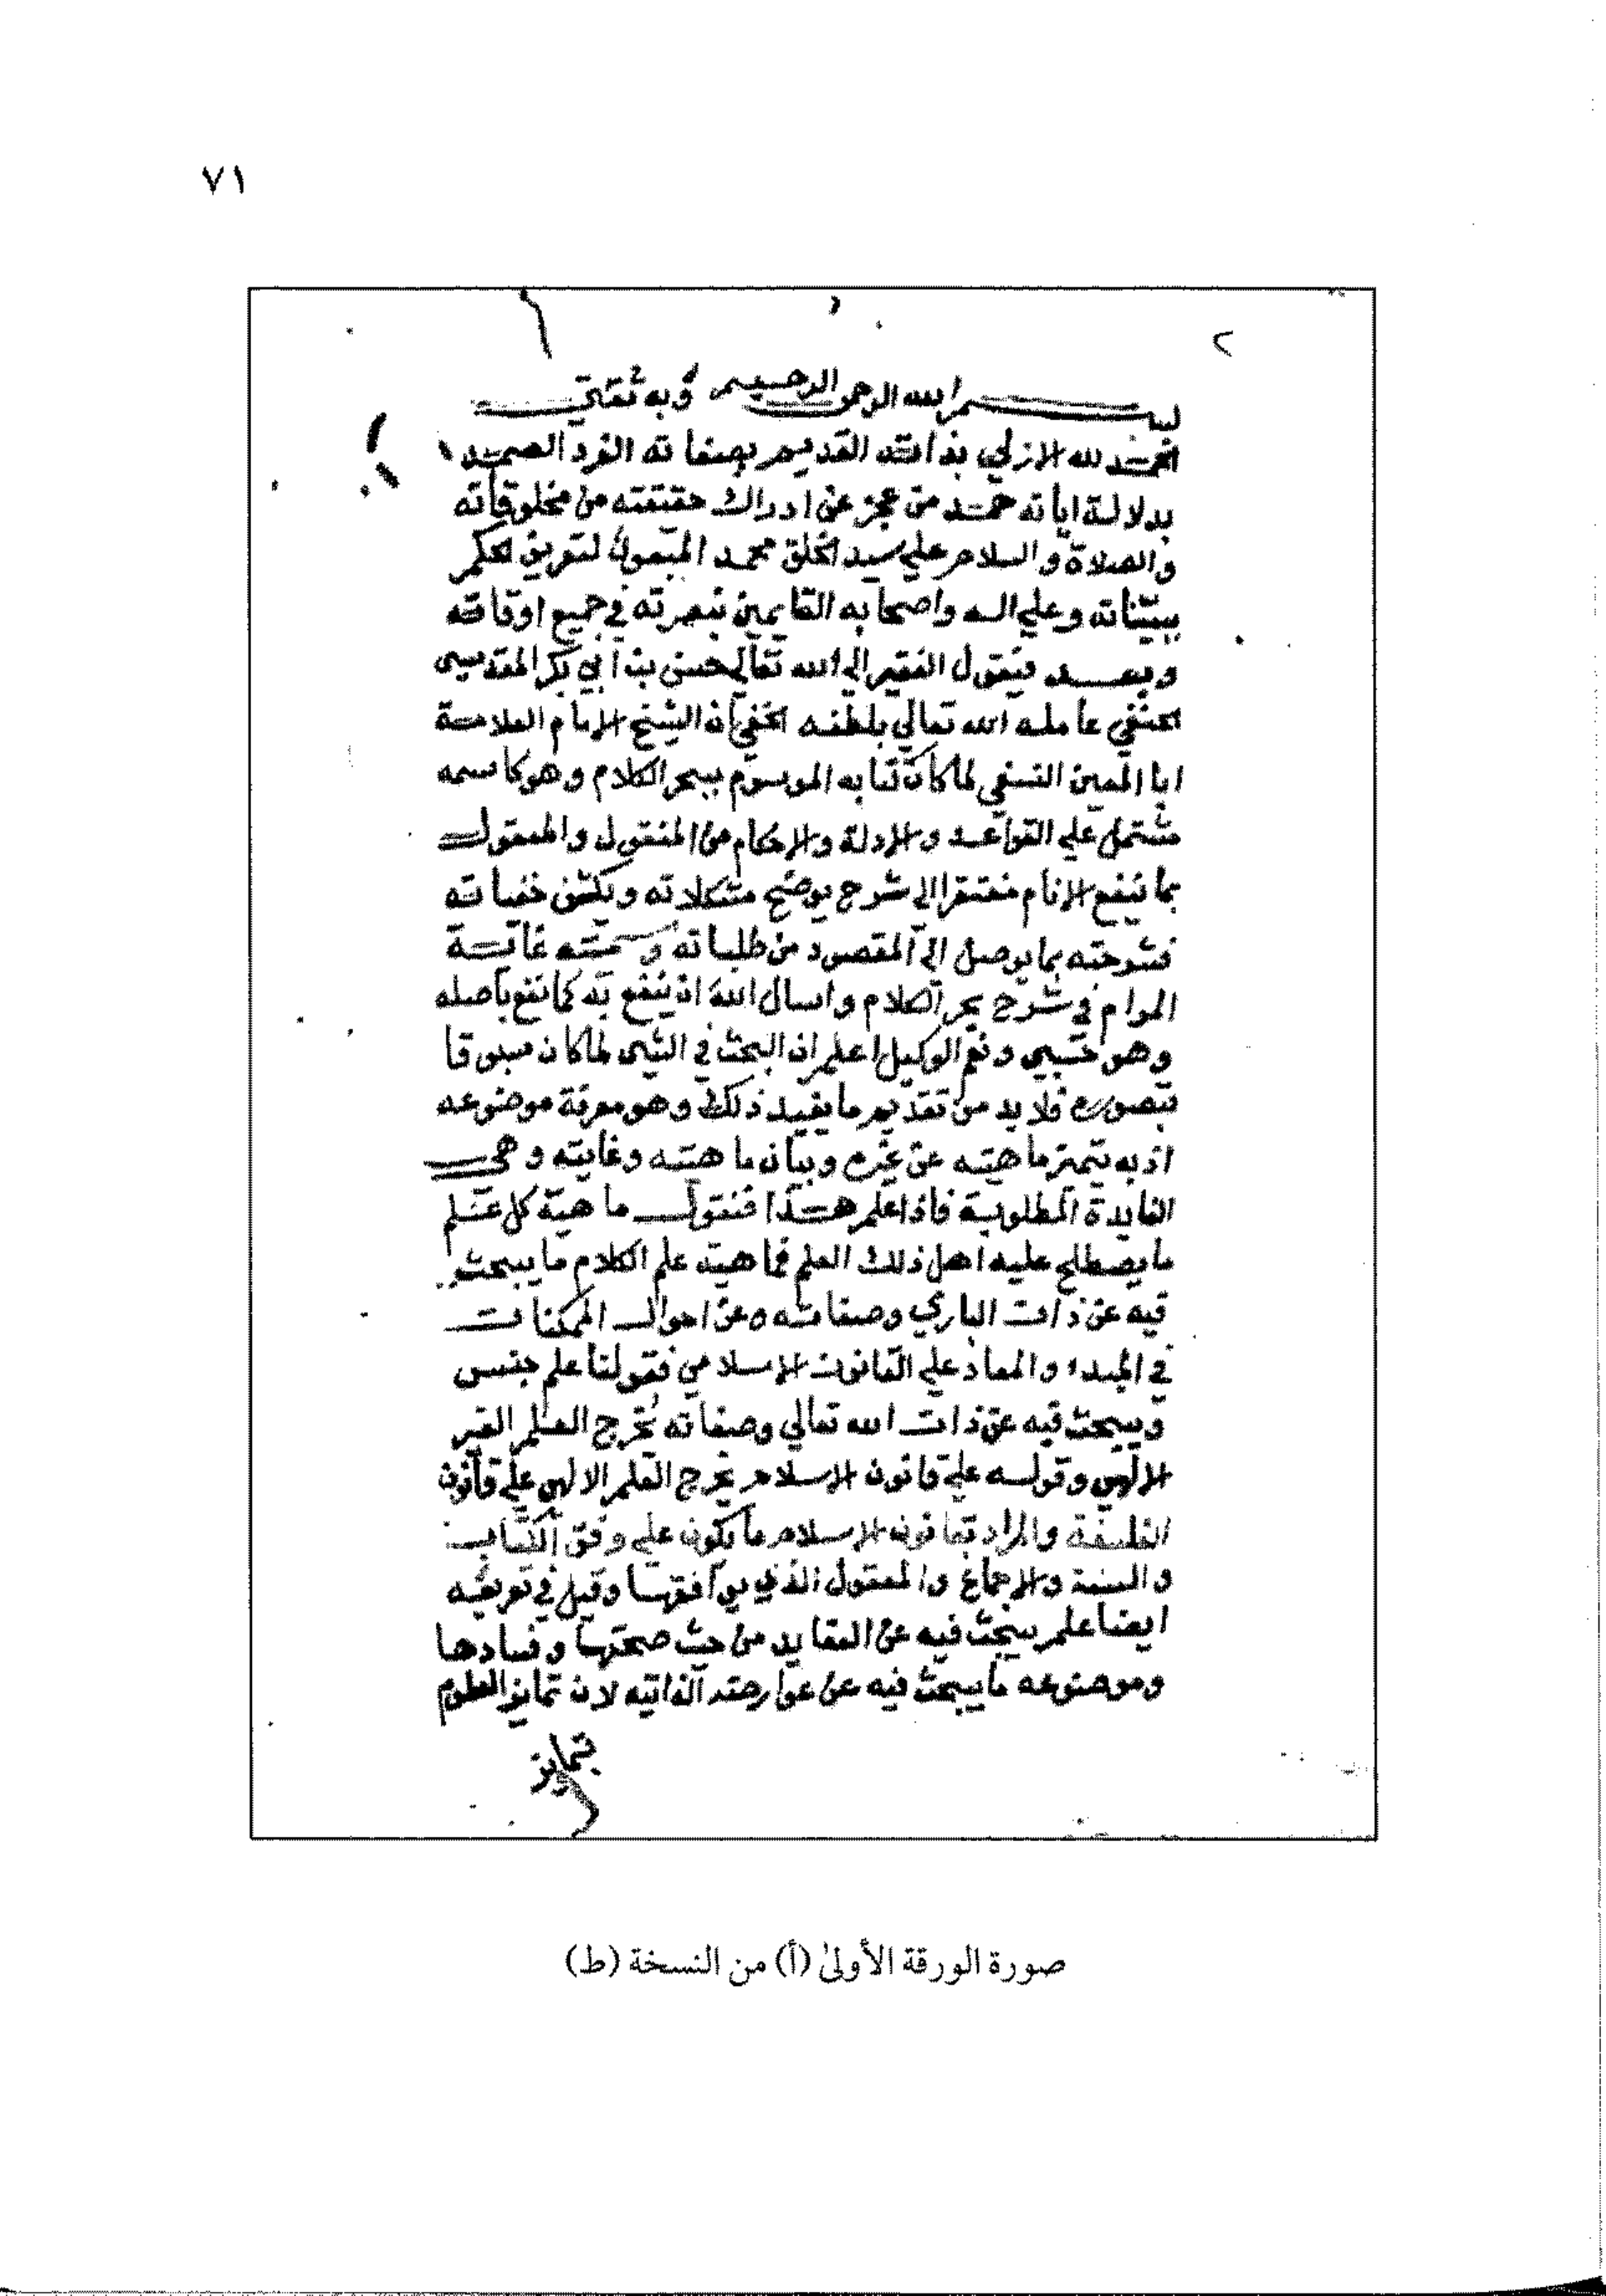 ٧١
٢
بسم الله الرحمن الرحيم وبه ثقتي
الحمد لله الازلي بذاته القديم بصفاته الفرد الصمد
بدلالة اياته حمد من عجز عن ادراك حقيقته من مخلوقاته
والصلاة والسلام علي سيد الخلق محمد المبعوث لتعريف الحكم
ببيناته وعلي اله واصحابه القايمين بنصرته في جميع اوقاته
وبعد فيقول الفقير الي الله تعالي حسن بن ابي بكر المقدسي
الحنفي عامله الله تعالي بلطفه الخفي ان الشيخ الامام العلامة
ابا المعين النسفي لما كان كتابه الموسوم ببحر الكلام وهو كاسمه
مشتمل علي القواعد والادلة والاحكام من المنقول والمعقول
بما ينفع الانام مفتقرا الي شرح يوضح مشكلاته ويكشف خفياته
فشرحته بما يوصل الي المقصود من طلباته وسميته غاية
المرام في شرح بحر الكلام واسال الله ان ينفع به كما نفع باصله
وهو حسبي ونعم الوكيل اعلم ان البحث في الشي لما كان مسبوقا
بتصوره فلا بد من تقديم ما يفيد ذلك وهو معرفة موضوعه
اذ به تتميز ماهيته عن غيره وبيان ماهيته وغايته وهي
الفايدة المطلوبة فاذا علم هذا فنقول ماهية كل علم
ما يصطلح عليه اهل ذلك العلم فماهية علم الكلام ما يبحث
فيه عن ذات الباري وصفاته وعن احوال الممكنات
في المبداء والمعاد علي القانون الاسلامي فقولنا علم جنس
ويبحث فيه عن ذات الله تعالي وصفاته يخرج العلم الغير
الالهي وقوله علي قانون الاسلام يخرج العلم الالهي علي قانون
الفلسفة والمراد بقانون الاسلام ما يكون علي وفق الكتاب
والسنة والاجماع والمعقول الذي يوافقها وقيل في تعريفه
ايضا علم يبحث فيه عن العقايد من حيث صحتها وفسادها
وموضوعه ما يبحث فيه عن عوارضه الذاتيه لان تمايز العلوم
بتمايز
صورة الورقة الأولىٰ (أ) من النسخة (ط)